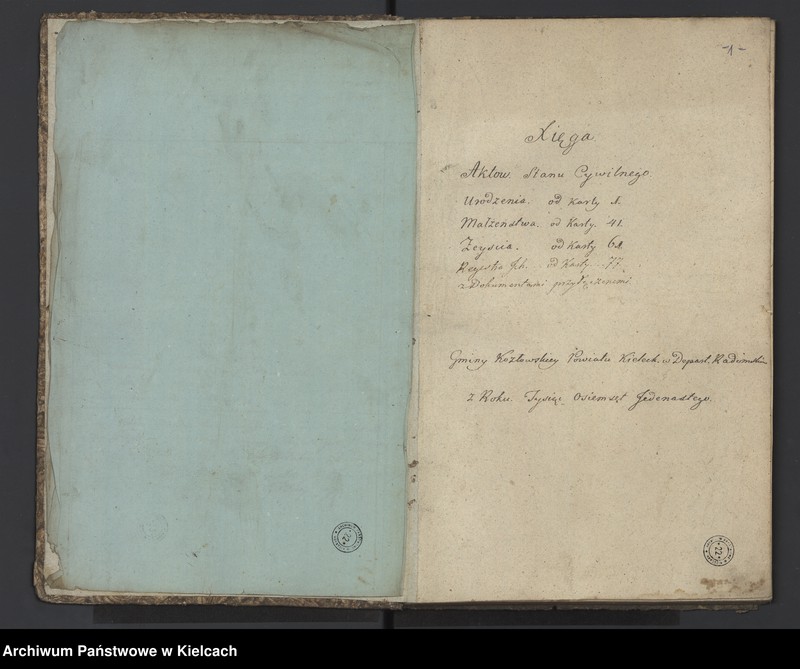 -1-
Xięga
Aktow Stanu Cywilnego
Urodzenia. od Karty 1.
Małżeństwa. od Karty. 41.
Zeyscia. od Karty 61.
Reyestra od Karty 77.
z Dokumentami przyłączenemi
Gminy Kozłowskiey Powiatu Kieleck. w Depart. Radomskim
z Roku. Tysiąc Osiemset Jedenastego.
22
22
Archiwum Państwowe w Kielcach